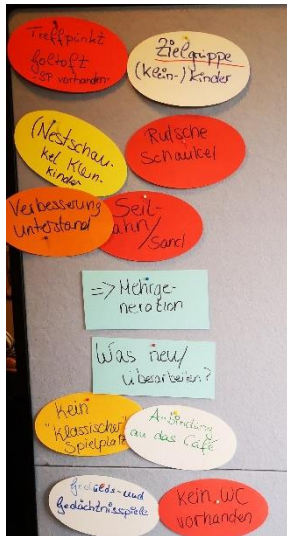 Treffpunkt
Foltoft
-SP vorhanden-
Zielgruppe
(Klein-)Kinder
(Nestschau-
kel Klein-
kinder
Rutsche
Schaukel
Verbesserung
Unterstand
Seil-
ahn/
Sand
=> Mehrge-
neration
Was neu/
überarbeiten?
Kein
"Klassischer"
Spielplatz
Anbindung
an das Café
Gedulds- und
Gedächtnisspiele
Kein WC
vorhanden